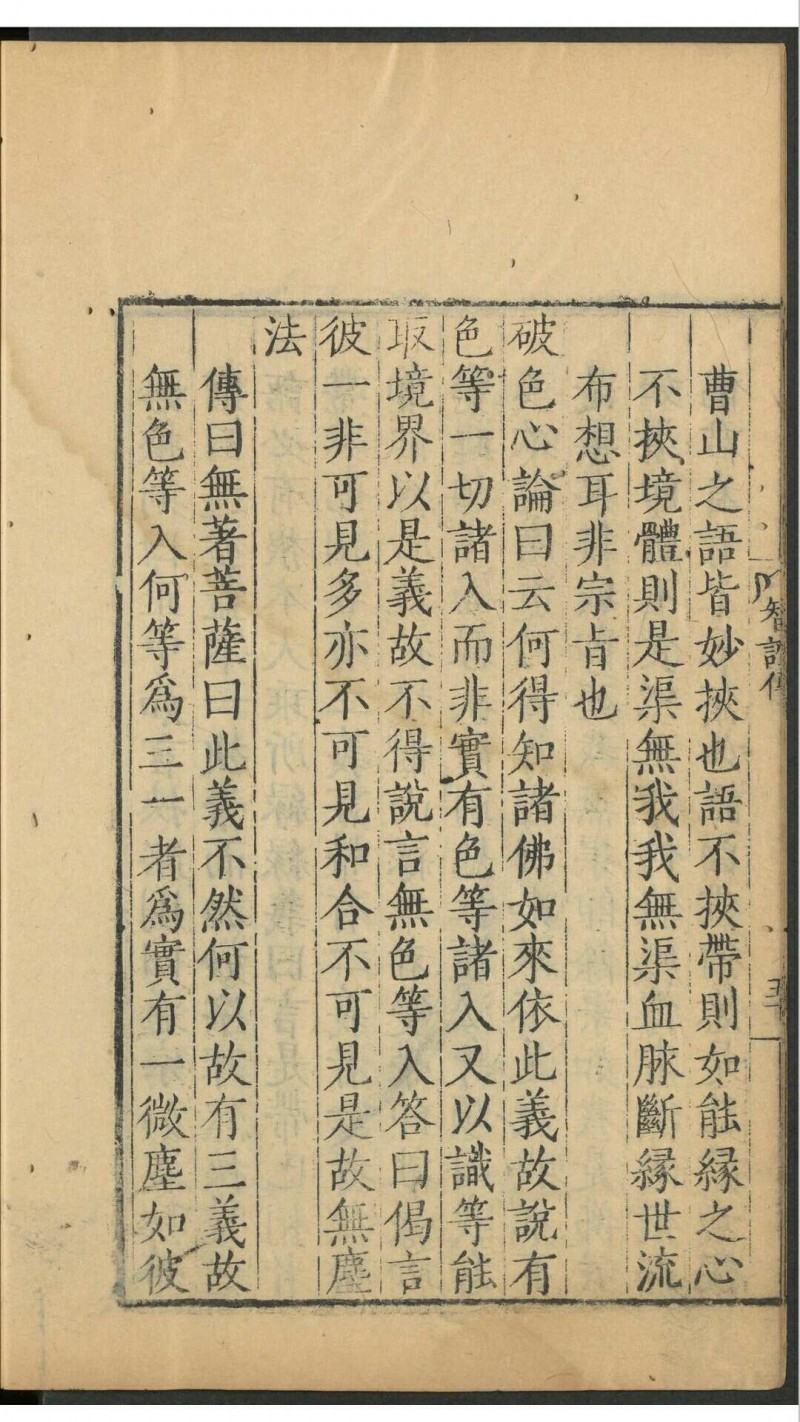 智證傳
曹山之語皆妙挾也語不挾帶則如能緣之心
不挾境體則是渠無我我無渠血脉斷緣世流
布想耳非宗旨也
破色心論曰云何得知諸佛如來依此義故說有
色等一切諸入而非實有色等諸入又以識等能
取境界以是義故不得說言無色等入答曰偈言
彼一非可見多亦不可見和合不可見是故無塵
法
傳曰無著菩薩曰此義不然何以故有三義故
無色等入何等爲三一者爲實有一微塵如彼